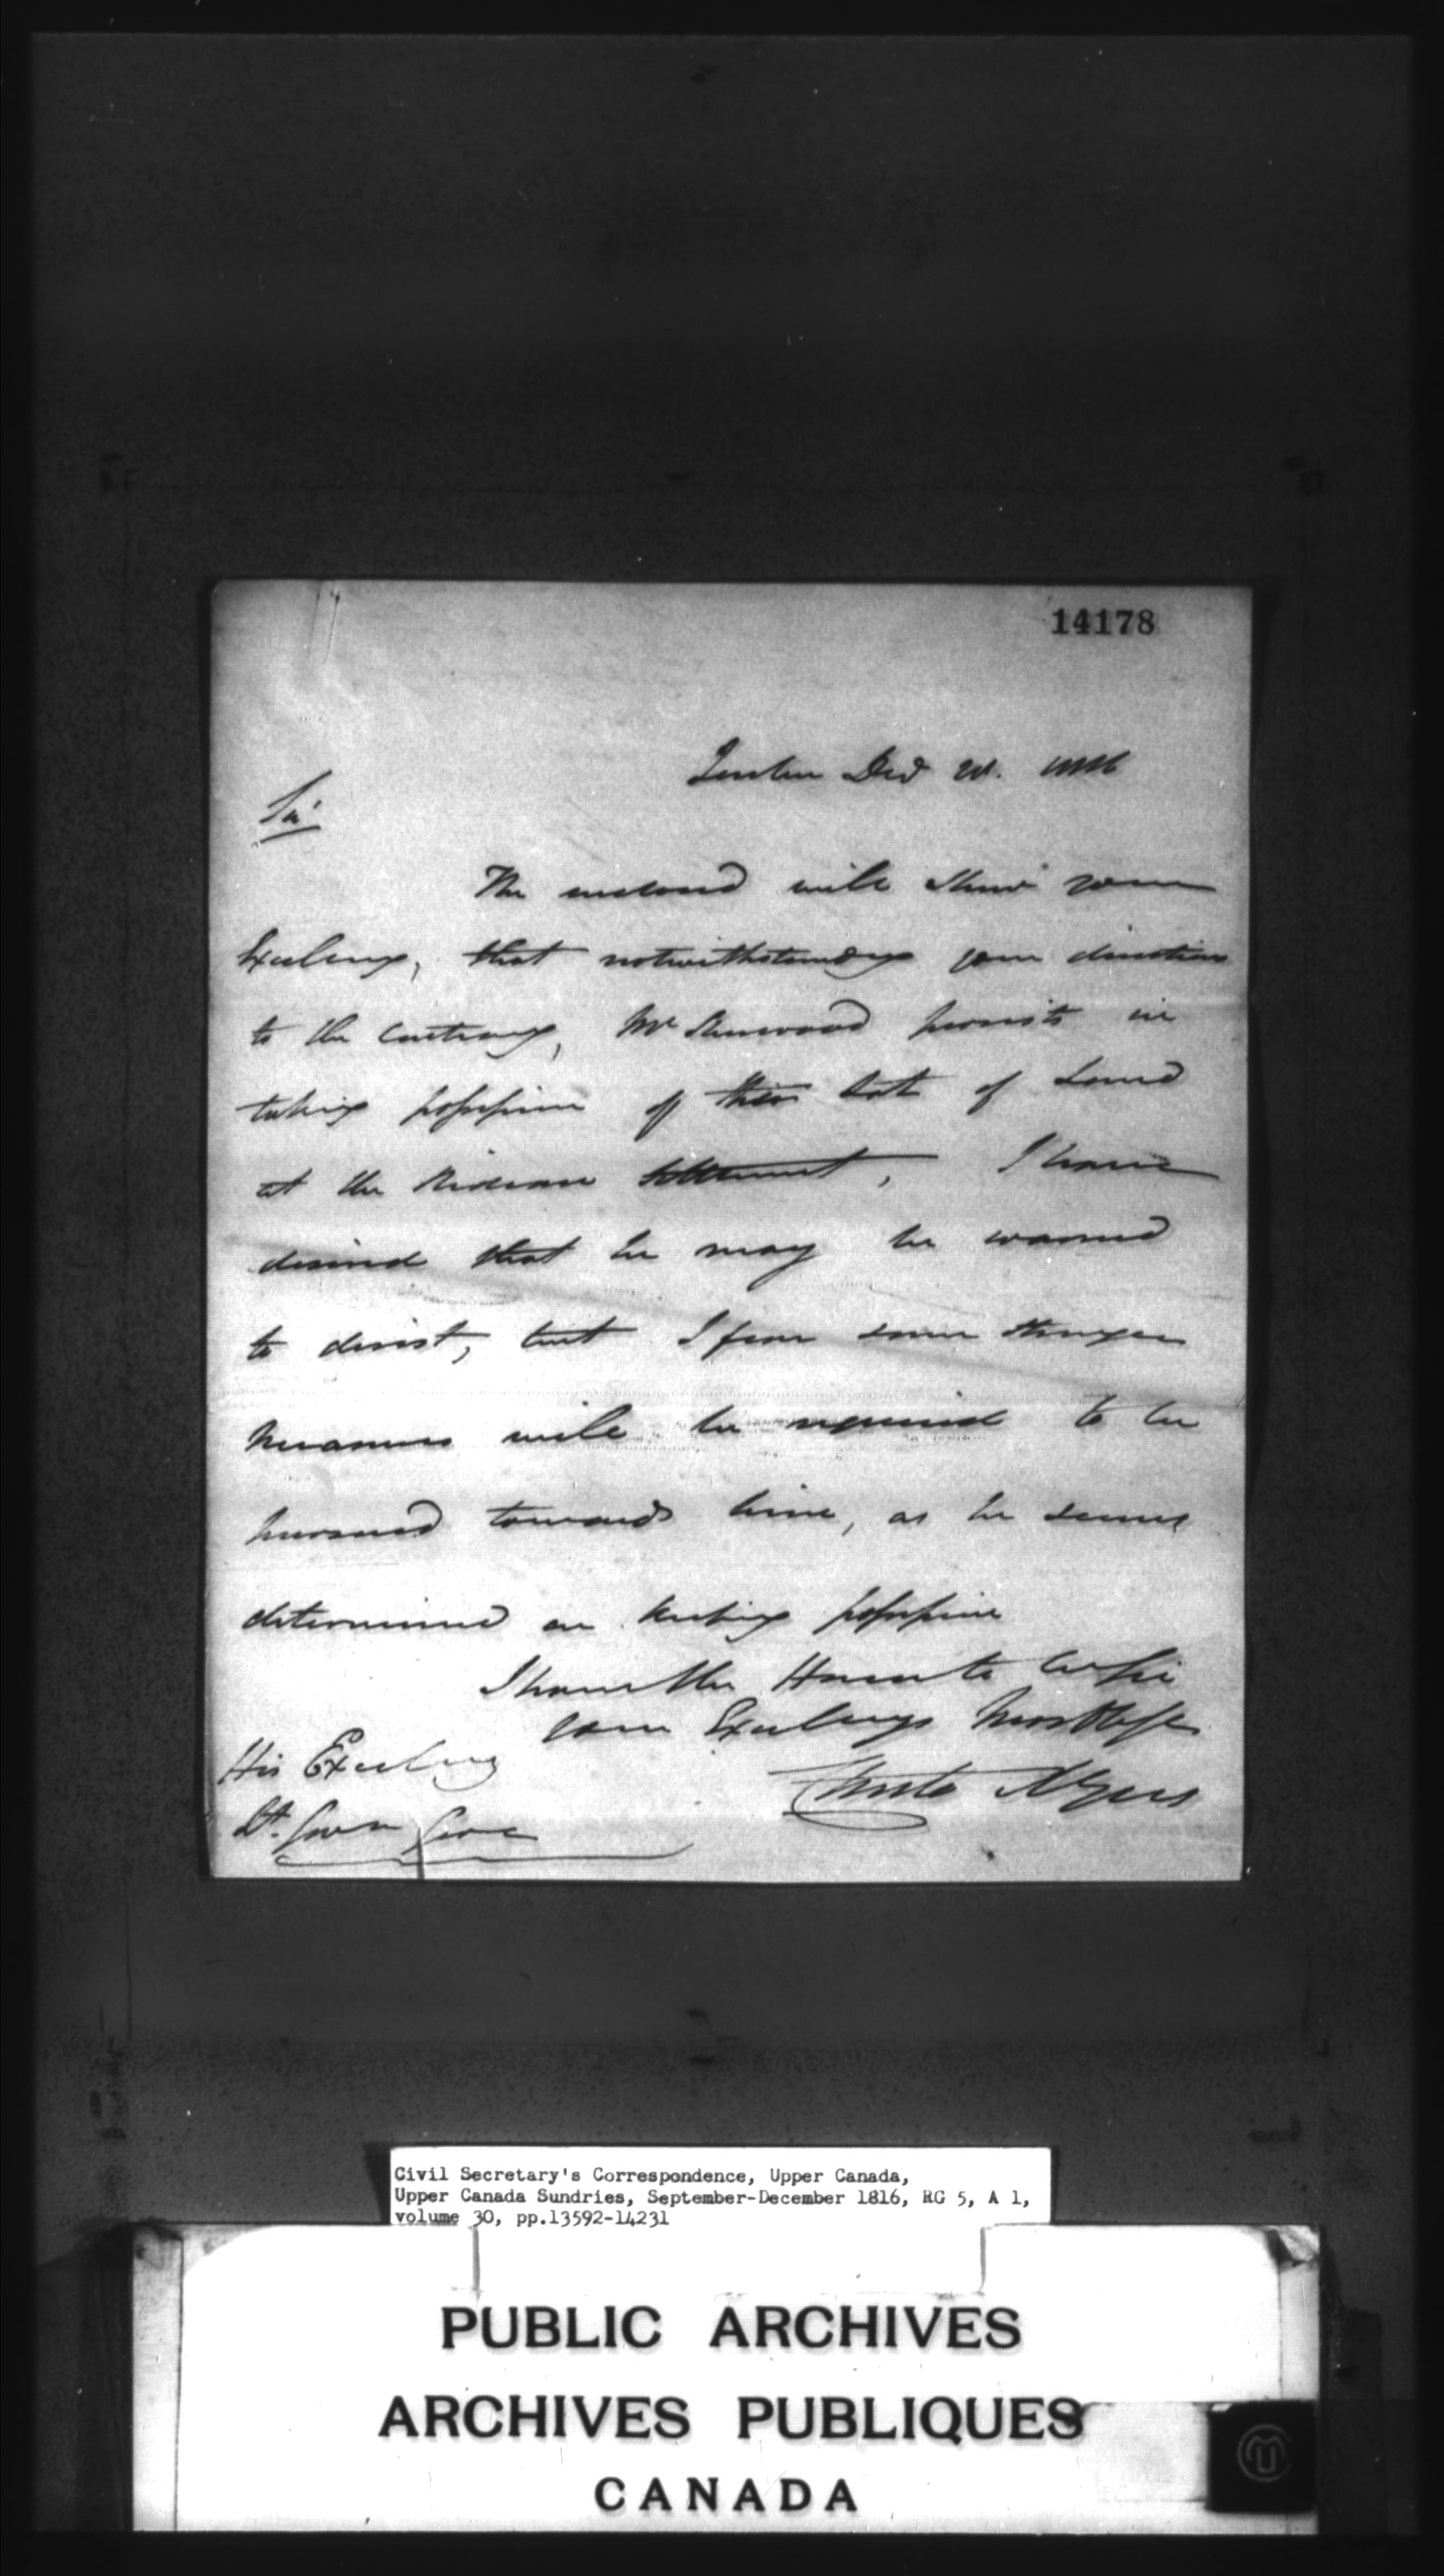 14178
Decr 1816
Sir
The enclosed will shew your
Excellency, that notwithstanding your directions
to the contrary, Mr Sherwood persists in
taking possession of this Lot of Land
at the Rideau Settlement, I have
desired that he may be warned
to desist, but I fear some stronger
measures will be required to be
pursued towards him, as he seems
determined on keeping possession
I have the Honor to be Sir
Your Excellencys Most
His Excellency
Christr Myers
Lt. Govr Gore
Civil Secretary's Correspondence, Upper Canada,
Upper Canada Sundries, September-December 1816, RG 5, A 1,
volume 30, pp.13592-14231
PUBLIC ARCHIVES
ARCHIVES PUBLIQUES
CANADA